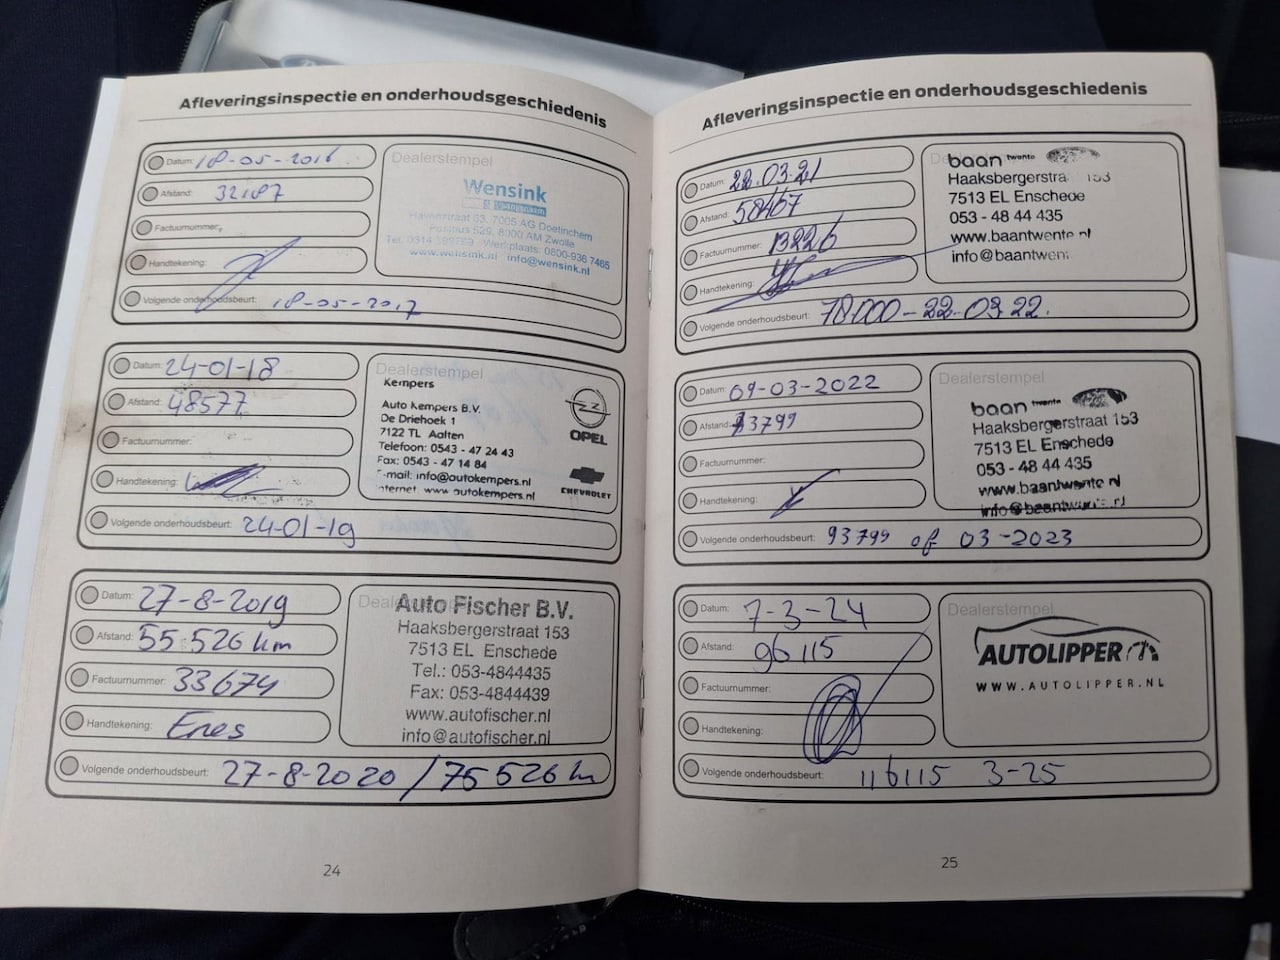 Afleveringsinspectie en onderhoudsgeschiedenis
Datum: 18-05-2016
Afstand: 32187
Factuurnummer:
Handtekening:
Volgende onderhoudsbeurt: 18-05-2017
Dealerstempel
Wensink
Havenstraat 63, 7005 AG Doetinchem
Postbus 529, 8000 AM Zwolle
Werkplaats: 0800-936 7465
www.wensink.nl info@wensink.nl
Datum: 24-01-18
Afstand: 48577
Factuurnummer:
Handtekening:
Volgende onderhoudsbeurt: 24-01-19
Dealerstempel
Kempers
Auto Kempers B.V.
De Driehoek 1
7122 TL Aalten
Telefoon: 0543 - 47 24 43
Fax: 0543 - 47 14 84
E-mail: info@autokempers.nl
Internet www autokempers.nl
OPEL
CHEVROLET
Datum: 27-8-2019
Afstand: 55.526 km
Factuurnummer: 33674
Handtekening: Enes
Volgende onderhoudsbeurt: 27-8-2020 / 75526 km
Auto Fischer B.V.
Haaksbergerstraat 153
7513 EL Enschede
Tel.: 053-4844435
Fax: 053-4844439
www.autofischer.nl
info@autofischer.nl
24
Afleveringsinspectie en onderhoudsgeschiedenis
Datum: 22.03.21
Afstand: 58467
Factuurnummer: 13226
Handtekening:
Volgende onderhoudsbeurt: 78000 - 22-03 22.
baan twente
Haaksbergerstra 153
7513 EL Enschede
053 - 48 44 435
www.baantwente.nl
info@baantwen
Datum: 09-03-2022
Afstand: 73799
Factuurnummer:
Handtekening:
Volgende onderhoudsbeurt: 93799 of 03-2023
Dealerstempel
baan twente
Haaksbergerstraat 153
7513 EL Enschede
053 - 48 44 435
www.baantwente nl
info@baantwente.nl
Datum: 7-3-24
Afstand: 96115
Factuurnummer:
Handtekening:
Volgende onderhoudsbeurt: 116115 3-25
Dealerstempel
AUTOLIPPER
WWW.AUTOLIPPER.NL
25